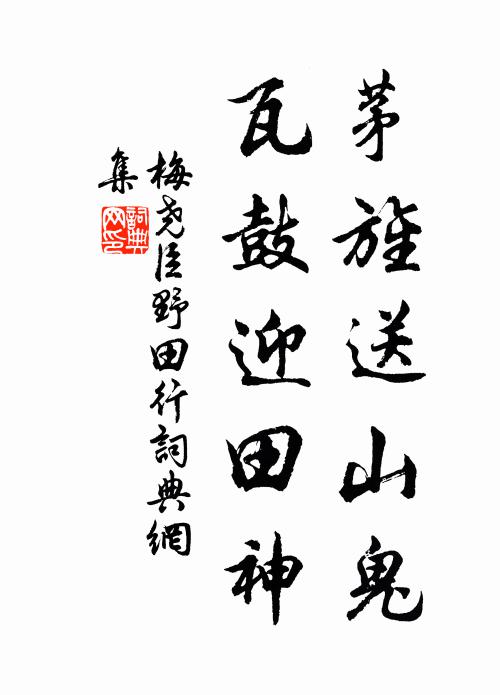 茅旌送山鬼
瓦鼓迎田神
梅尧臣野田行詞典網
集
詞典网印